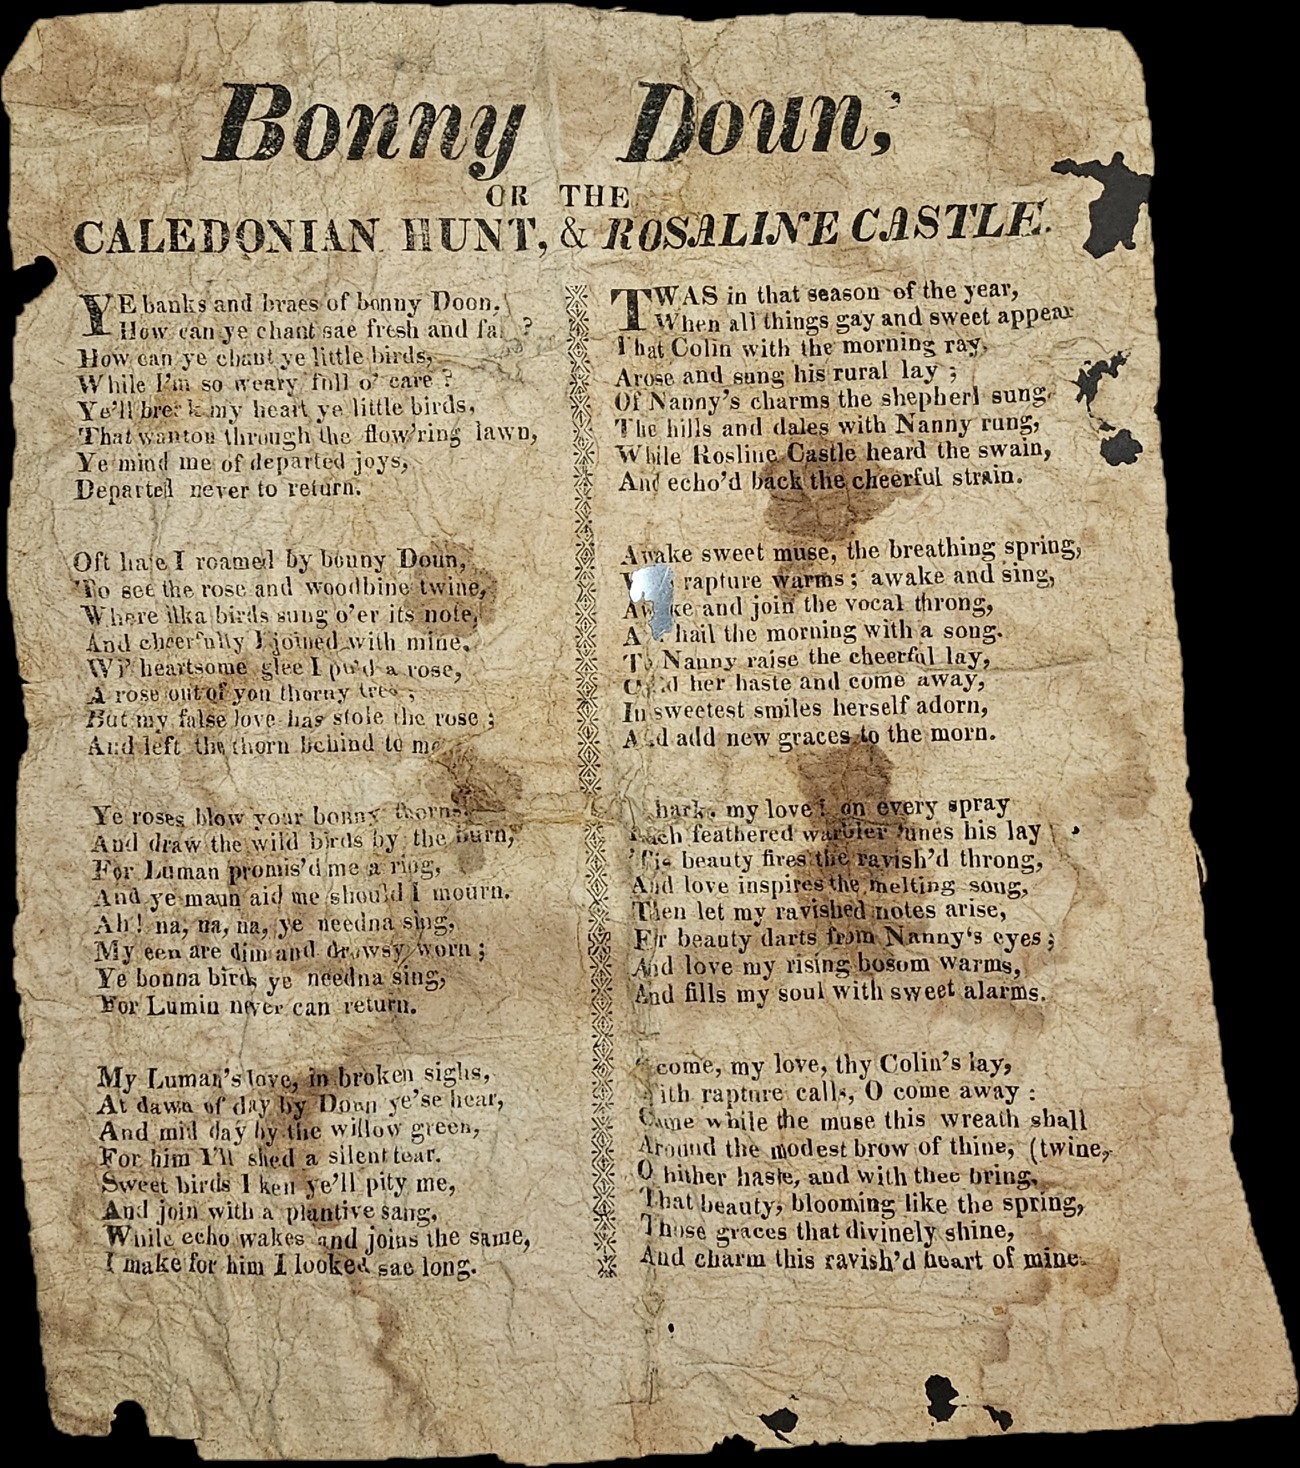 Bonny Doun,
OR THE
CALEDONIAN HUNT, & ROSALINE CASTLE.
YE banks and braes of bonny Doon,
How can ye chant sae fresh and ?
How can ye chant ye little birds,
While I'm so weary full o' care ?
Ye'll break my heart ye little birds,
That wanton through the flow'ring lawn,
Ye mind me of departed joys,
Departed never to return.
Oft ha'e I roamed by bonny Doun,
To see the rose and woodbine twine,
Where ilka birds sung o'er its note,
And cheerfully I joined with mine.
Wi' heartsome glee I pu'd a rose,
A rose out of yon thorny tree ;
But my false love has stole the rose ;
And left the thorn behind to me
Ye roses blow your bonny thorns
And draw the wild birds by the burn,
For Luman promis'd me a ring,
And ye maun aid me should I mourn.
Ah! na, na, na, ye needna sing,
My een are dim and drowsy worn ;
Ye bonna birds ye needna sing,
For Lumin never can return.
My Luman's love, in broken sighs,
At dawn of day by Doun ye'se hear,
And mid day by the willow green,
For him I'll shed a silent tear.
Sweet birds I ken ye'll pity me,
And join with a plantive sang,
While echo wakes and joins the same,
I make for him I looked sae long.
TWAS in that season of the year,
When all things gay and sweet appear
That Colin with the morning ray,
Arose and sung his rural lay ;
Of Nanny's charms the shepherl sung
The hills and dales with Nanny rung,
While Rosline Castle heard the swain,
And echo'd back the cheerful strain.
Awake sweet muse, the breathing spring,
rapture warms ; awake and sing,
Awake and join the vocal throng,
hail the morning with a song.
To Nanny raise the cheerful lay,
her haste and come away,
In sweetest smiles herself adorn,
And add new graces to the morn.
hark, my love ! on every spray
Each feathered warbler tunes his lay
'Tis beauty fires the ravish'd throng,
And love inspires the melting song,
Then let my ravished notes arise,
For beauty darts from Nanny's eyes ;
And love my rising bosom warms,
And fills my soul with sweet alarms.
come, my love, thy Colin's lay,
With rapture calls, O come away :
Come while the muse this wreath shall
Around the modest brow of thine, (twine,
O hither haste, and with thee bring,
That beauty, blooming like the spring,
Those graces that divinely shine,
And charm this ravish'd heart of mine.